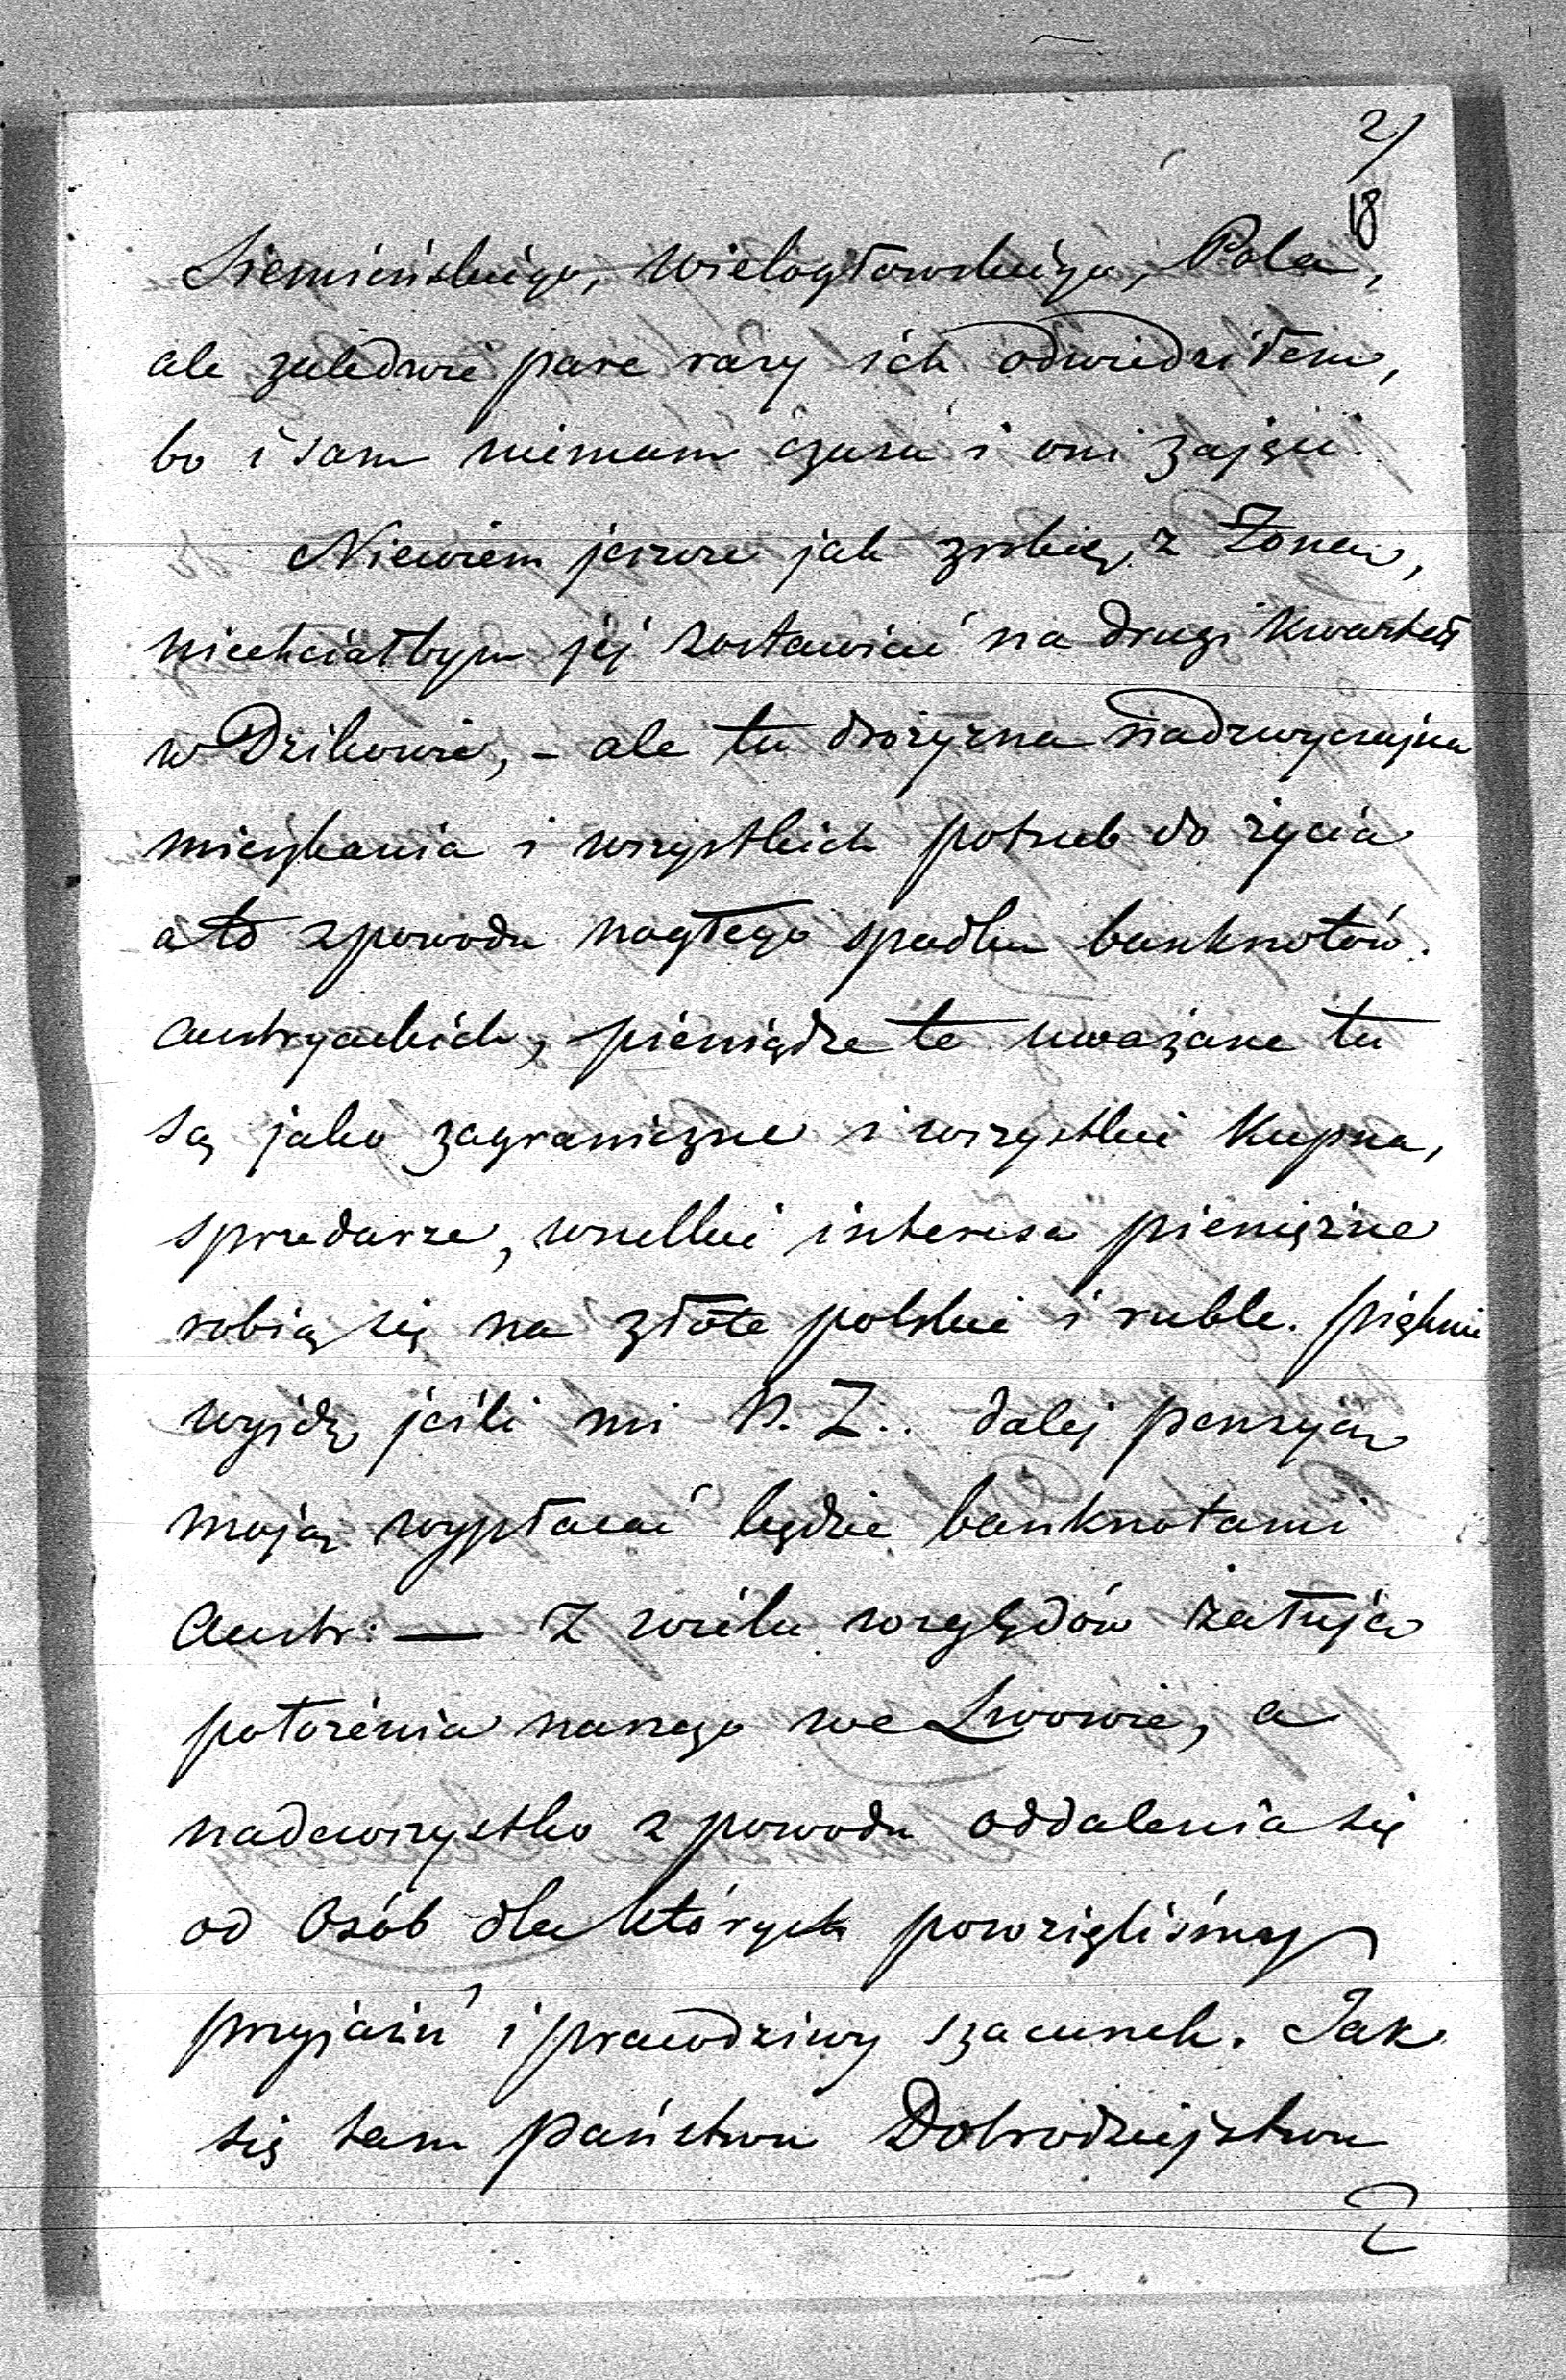 2/
18
Siemińskiego, Wielogłowskiego, Pola,
ale zaledwie pare razy ich odwiedziłem,
bo i sam niemam czasu i oni zajęci.
Niewiem jeszcze jak zrobię z Żoną,
niechciałbym jej zostawić na drugi kwartał
w Dzikowie, – ale tu drożyzna nadzwyczajna
mieszkania i wszystkich potrzeb do życia
a to z powodu nagłego spadku banknotów
austryackich, pieniądze te uważane tu
są jako zagraniczne i wszystkie kupna,
sprzedarze, wszelkie interesa pieniężne
robią się na złote polskie i ruble. pięknie
wyjdę jeśli mi P. Z.. dalej pensyą
moją wypłacać będzie banknotami
Austr: — Z wielu względów żałuję
położenia naszego we Lwowie, a
nadewszystko z powodu oddalenia się
od Osób dla których powzięliśmy
przyjaźń i prawdziwy szacunek. Jak
się tam Państwu Dobrodziejstwu